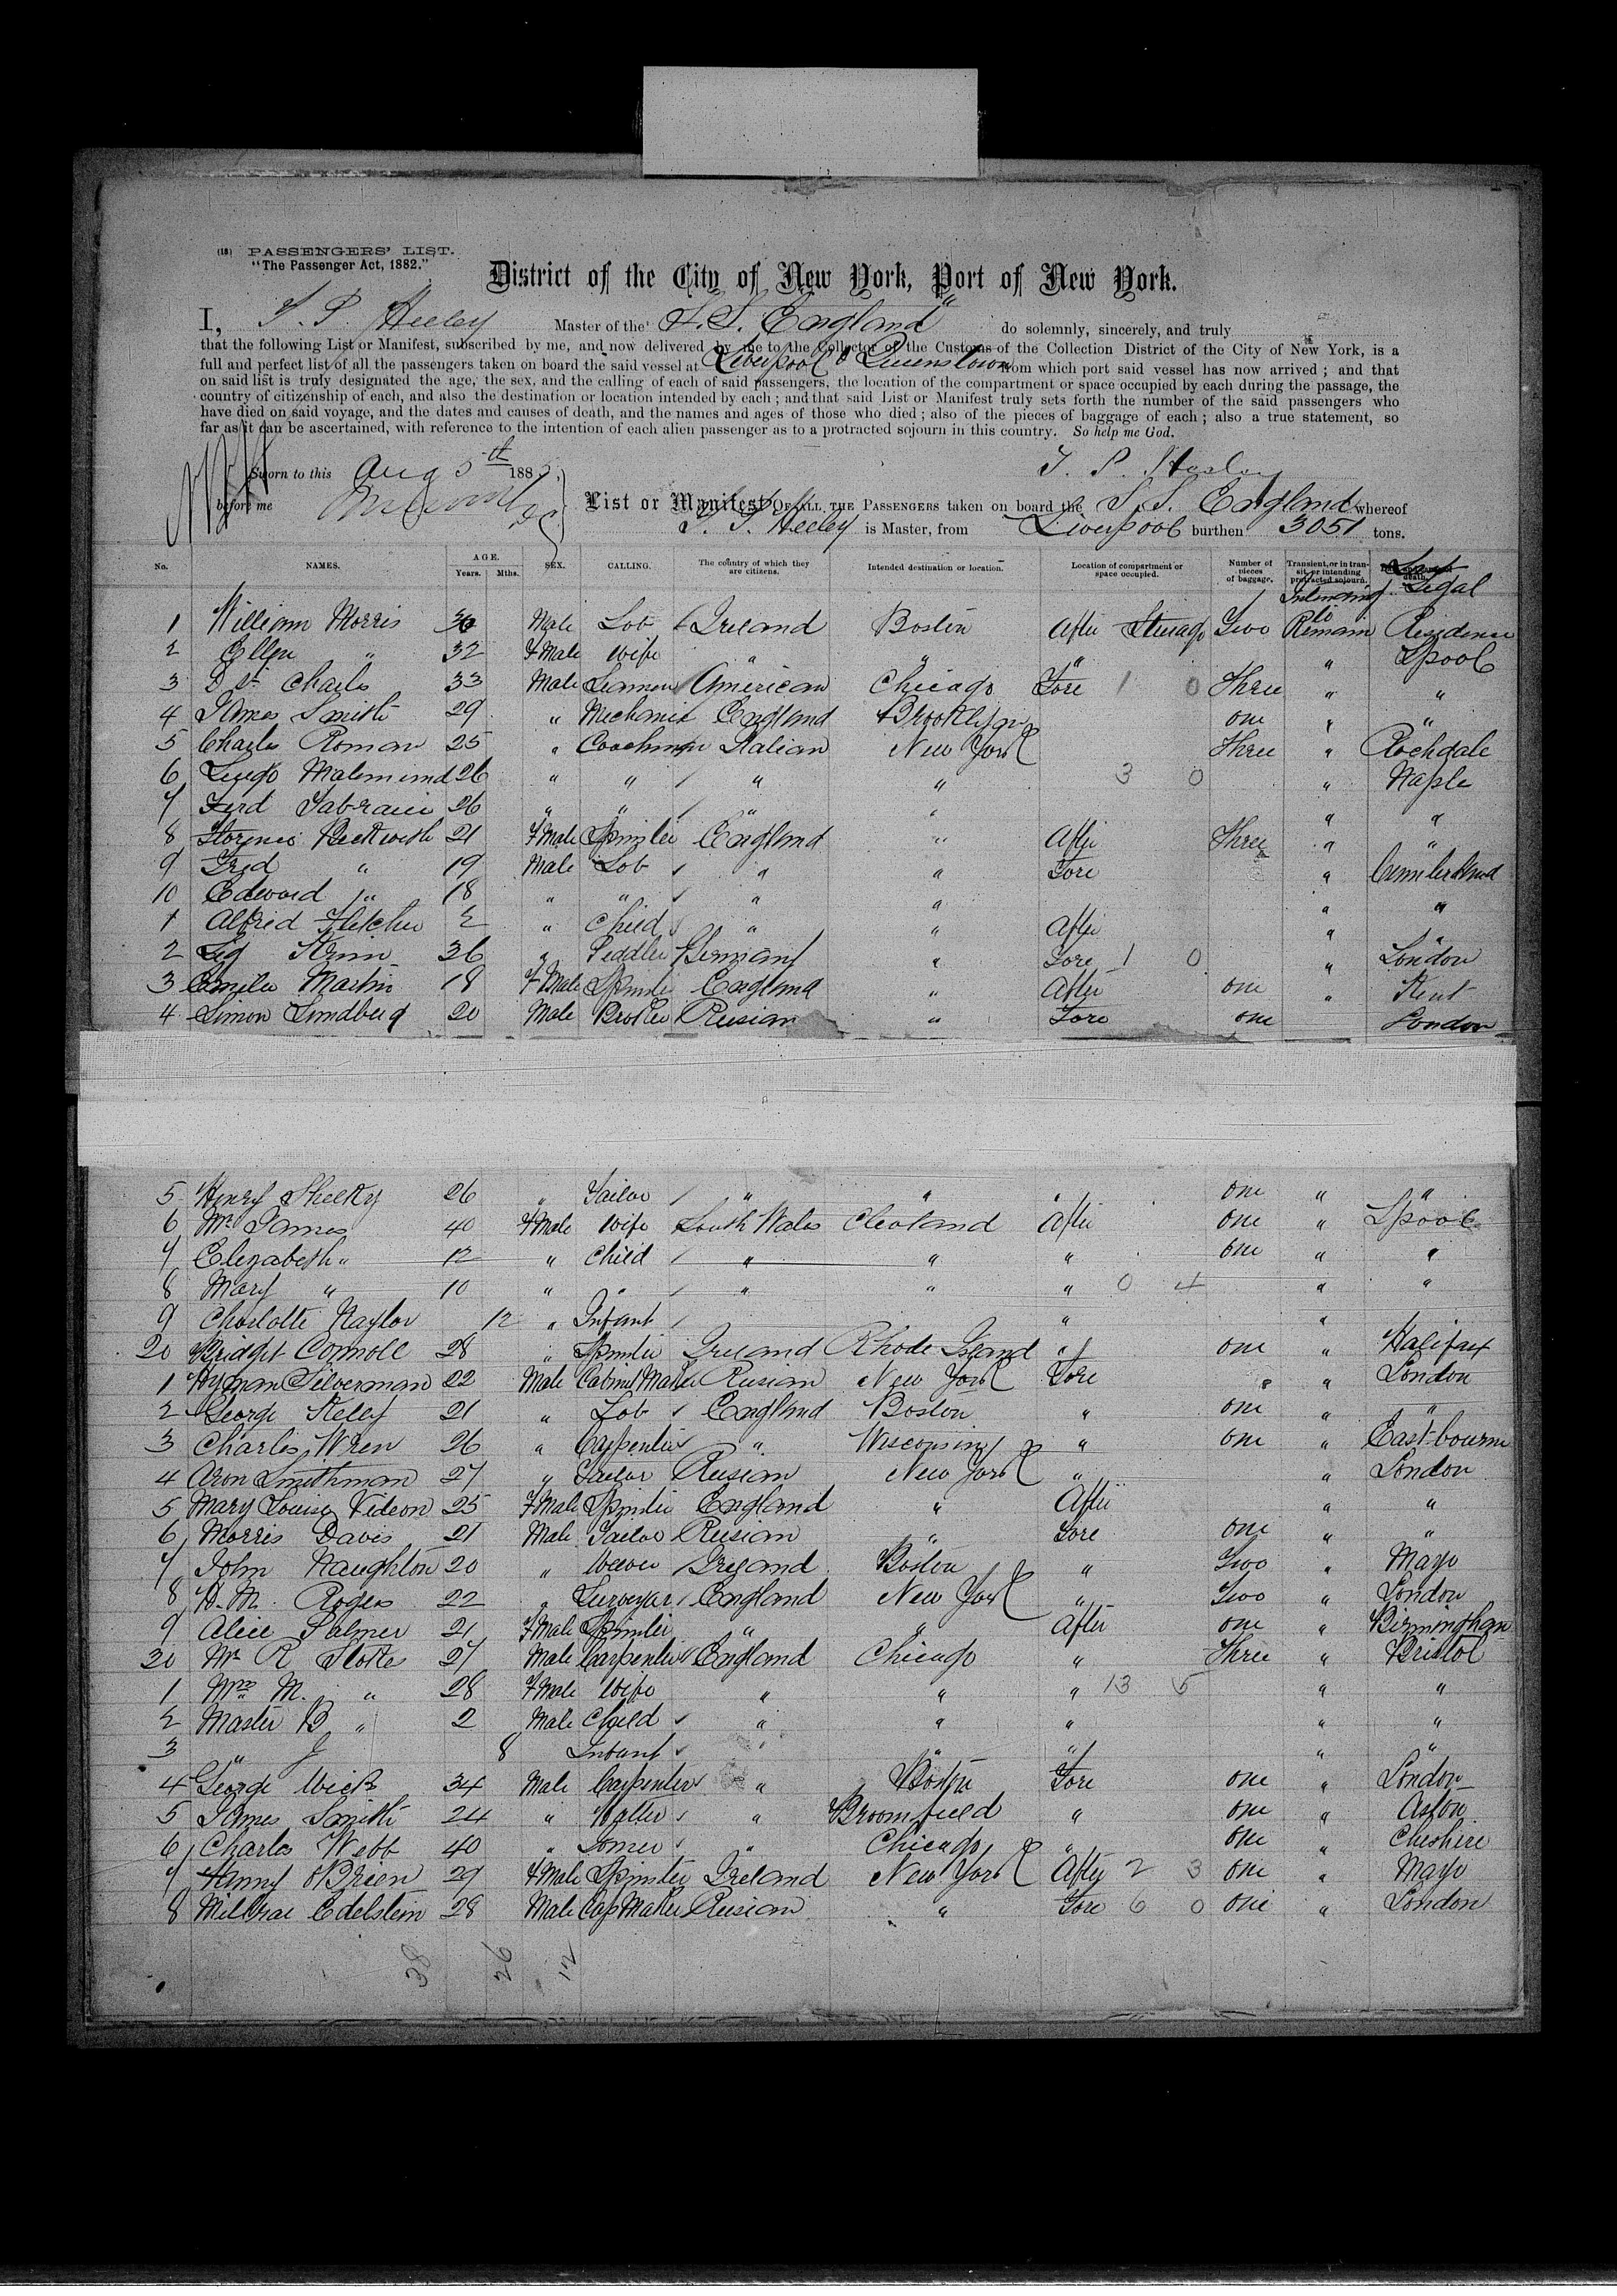 (18) PASSENGERS' LIST.
"The Passenger Act, 1882."
District of the City of New York, Port of New York.
I, Heeley Master of the S.S. England" do solemnly, sincerely, and truly
that the following List or Manifest, subscribed by me, and now delivered by me to the Collector of the Customs of the Collection District of the City of New York, is a
full and perfect list of all the passengers taken on board the said vessel at Liverpool & Queenstown from which port said vessel has now arrived; and that
on said list is truly designated the age, the sex, and the calling of each of said passengers, the location of the compartment or space occupied by each during the passage, the
country of citizenship of each, and also the destination or location intended by each; and that said List or Manifest truly sets forth the number of the said passengers who
have died on said voyage, and the dates and causes of death, and the names and ages of those who died; also of the pieces of baggage of each; also a true statement, so
far as it can be ascertained, with reference to the intention of each alien passenger as to a protracted sojourn in this country. So help me God.
Sworn to this Aug 5th 188 Heeley
before me List or Manifest OF ALL THE PASSENGERS taken on board the S.S. England whereof
Heeley is Master, from Liverpool burthen 3051 tons.
No. NAMES. AGE. Years. Mths. SEX. CALLING. The country of which they are citizens. Intended destination or location. Location of compartment or space occupied. Number of pieces of baggage. Transient, or in transit, or intending protracted sojourn. Legal
1 William Morris 30 Male Lab Ireland Boston After Steerage Two Intending to Remain Residence
2 Ellen " 32 F Male Wife " " " " Lpool
3 D St Charles 33 Male Seaman American Chicago Fore 1 0 Three " "
4 James Smith 29 " Mechanic England Brooklyn one " "
5 Charles Roman 25 " Coachman Italian New York Three " Rochdale
6 26 " " " " 3 0 " Naple
7 Ferd 26 " " " " " "
8 Beckwith 21 F Male Spinster England " After Three " "
9 Fred " 19 Male Lab " " Fore " Cumberland
10 Edward " 18 " " " " " "
1 Alfred Fletcher 2 " Child " " After "
2 36 " Peddler Germany " Fore 1 0 " London
3 Martin 18 F Male Spinster England " After one " Kent
4 Simon Lindberg 20 Male Russian " Fore one London
5 Henry 26 " Tailor " " " one " "
6 Mrs James 40 F Male Wife South Wales Cleveland After one " Lpool
7 Elizabeth " 12 " Child " " " one " "
8 Mary " 10 " " " " " 0 4 " "
9 Charlotte Naylor 12 " Infant " "
20 Bridget Connoll 28 " Spinster Ireland Rhode Island " one " Halifax
1 Hyman Silverman 22 Male Cabinet Maker Russian New York Fore " " London
2 George Kelly 21 " Lab England Boston " one " "
3 Charles Wren 26 " Carpenter " Wisconsin " one " Eastbourne
4 Aron Smithman 27 " Tailor Russian New York " " London
5 Mary Louise Videon 25 F Male Spinster England " After " "
6 Morris Davis 21 Male Tailor Russian " Fore one " "
7 John Naughton 20 " Weaver Ireland Boston " Two " Mayo
8 H. M. Rogers 22 " Surveyor England New York " Two " London
9 Alice Palmer 21 F Male Spinster " " After one " Birmingham
30 Mr R 27 Male Carpenter England Chicago " Three " Bristol
1 Mrs M. " 28 F Male Wife " " " 13 5 " "
2 Master B " 2 Male Child " " " " "
3 " J 8 Infant " " " " "
4 George Wick 34 Male Carpenter " Boston Fore one " London
5 James Smith 24 " " Broomfield " one "
6 Charles Webb 40 " " Chicago " one " Cheshire
7 OBrien 29 F Male Spinster Ireland New York After 2 3 one " Mayo
8 Edelstein 28 Male Cap Maker Russian " Fore 6 0 one " London
38 26 12